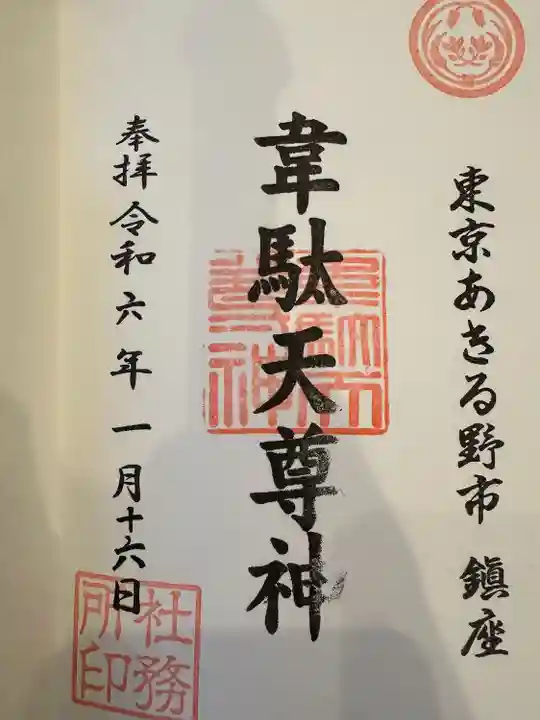 東京あきる野市 鎮座
韋駄天尊神
韋駄天尊神
奉拝 令和六年一月十六日
社務所印